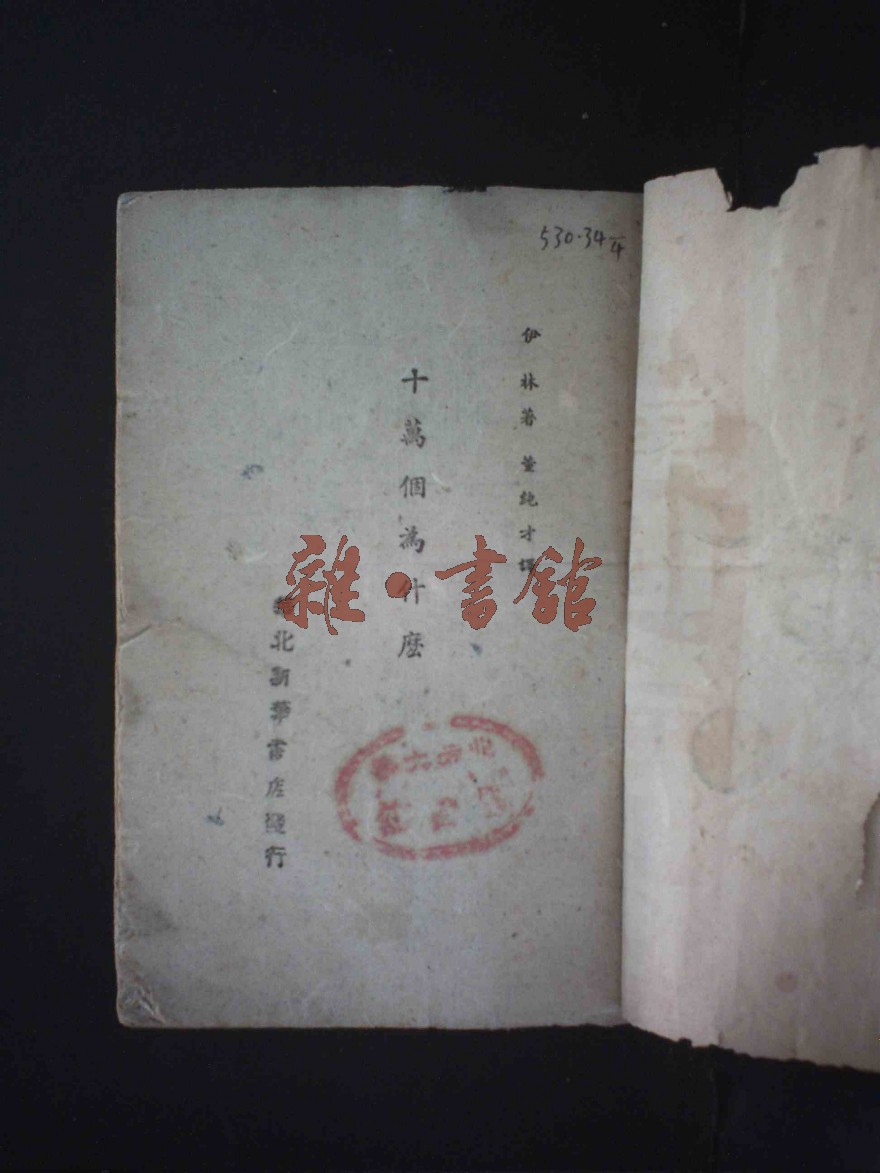 530·34 1/4
伊林著 董純才譯
十萬個為什麽
北新華書店發行
雜·書館